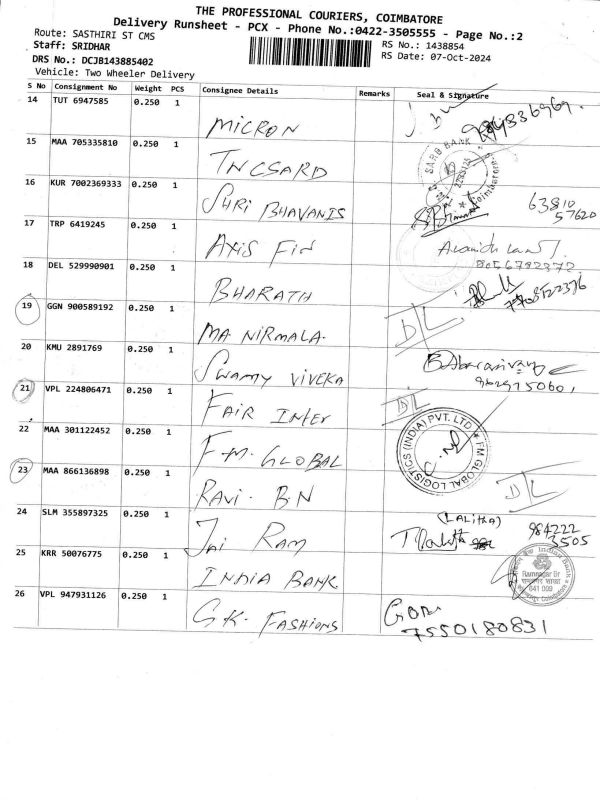 THE PROFESSIONAL COURIERS, COIMBATORE
Delivery Runsheet - PCX - Phone No.:0422-3505555 - Page No.:2
Route: SASTHIRI ST CMS
RS No.: 1438854
Staff: SRIDHAR
RS Date: 07-Oct-2024
DRS No.: DCJB143885402
Vehicle: Two Wheeler Delivery
S No Consignment No Weight PCS Consignee Details Remarks Seal & Signature
14 TUT 6947585 0.250 1
MICRON
15 MAA 705335810 0.250 1
TNCSARD
SARB BANK
16 KUR 7002369333 0.250 1
SHRI BHAVANIS
63810
57620
17 TRP 6419245 0.250 1
AXIS FIN
8056792372
18 DEL 529990901 0.250 1
BHARATH
7708522376
19 GGN 900589192 0.250 1
MA NIRMALA.
DL
20 KMU 2891769 0.250 1
SWAMY VIVEKA
21 VPL 224806471 0.250 1
FAIR INTER
DL
22 MAA 301122452 0.250 1
FM. GLOBAL
FM GLOBAL LOGISTICS (INDIA) PVT. LTD
23 MAA 866136898 0.250 1
RAVI. B.N
DL
24 SLM 355897325 0.250 1
JAI RAM
(LALITHA)
984222
3505
25 KRR 50076775 0.250 1
INDIA BANK
Indian Bank
Ramnagar Br
641 009
Coimbatore
26 VPL 947931126 0.250 1
G.K. FASHIONS
7550180831